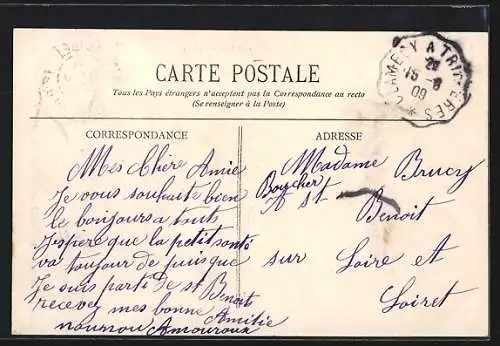 CARTE POSTALE
Tous les Pays étrangers n'acceptent pas la Correspondance au recto
(Se renseigner à la Poste)
CLAMECY A TRIGUÈRES
15 -8
09
CORRESPONDANCE
Mes Chère Amie
Je vous souhaite bien
le bonjours a touts
Jespere que la petit santé
va toujour de puisque
Je suis parti de st Benoit
recevez mes bonne Amitie
Amouroux
ADRESSE
Madame Brucy
Boucher
A st Benoit
sur Loire et
Loiret